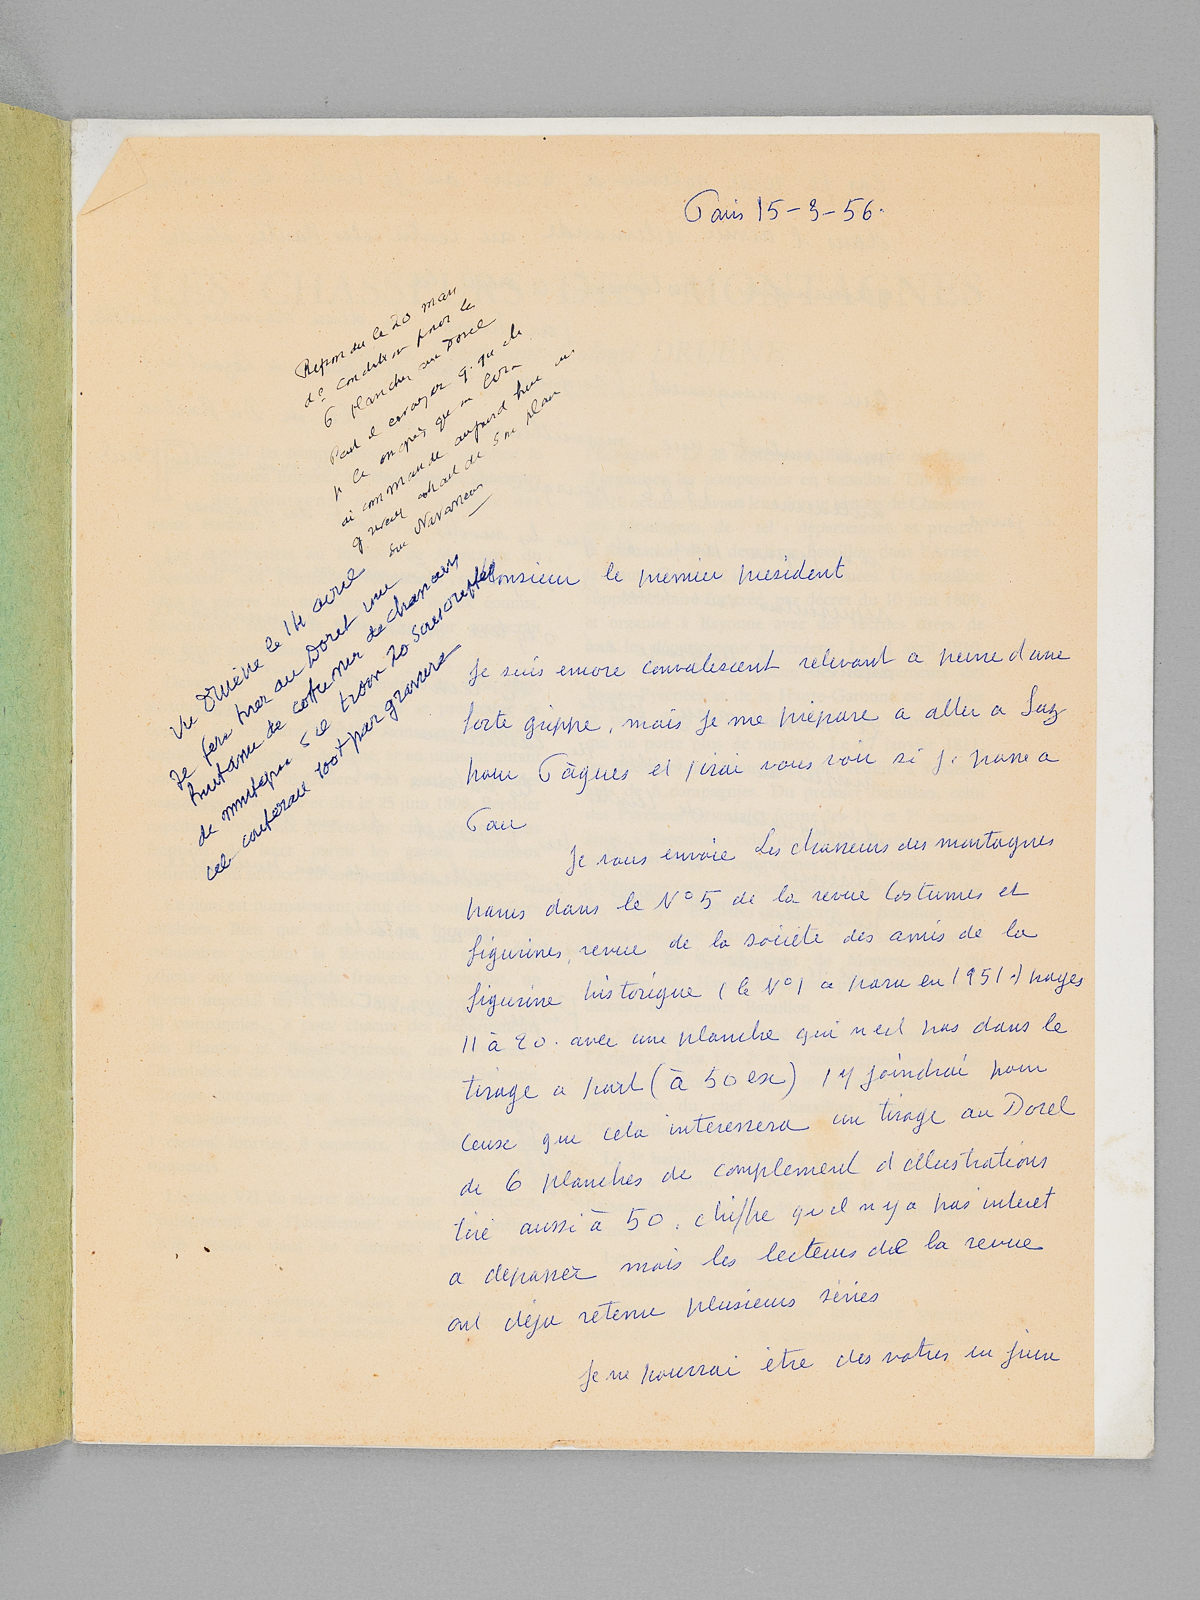 Paris 15-3-56.
Repondu le 20 mars
de condition pour le
6 planches au Dorel
Peut il envoyer q. que ch
ai commande aujourd hui
Vu Dr le 14 avril
Je fera tirer au Dorel une
de costumes de chasseurs
de montagne s il trouve 20 souscriptes
cela couterait 100f par gravure
Monsieur le premier president
Je suis encore convalescent relevant a peine d une
forte grippe, mais je me prepare a aller a Luz
pour Pâques et j irai vous voir si je passe a
Pau
Je vous envoie Les chasseurs des montagnes
parus dans le N° 5 de la revue Costumes et
figurines, revue de la société des amis de la
figurine historique (le N° 1 a paru en 1951.) pages
11 à 20. avec une planche qui n est pas dans le
tirage a part (à 50 ex) j y joindrai pour
ceux que cela interessera un tirage au Dorel
de 6 planches de complement d illustrations
tiré aussi à 50. chiffre qu il n y a pas interet
a depasser mais les lecteurs de la revue
ont déja retenu plusieurs séries
Je ne pourrai être des votres en juin